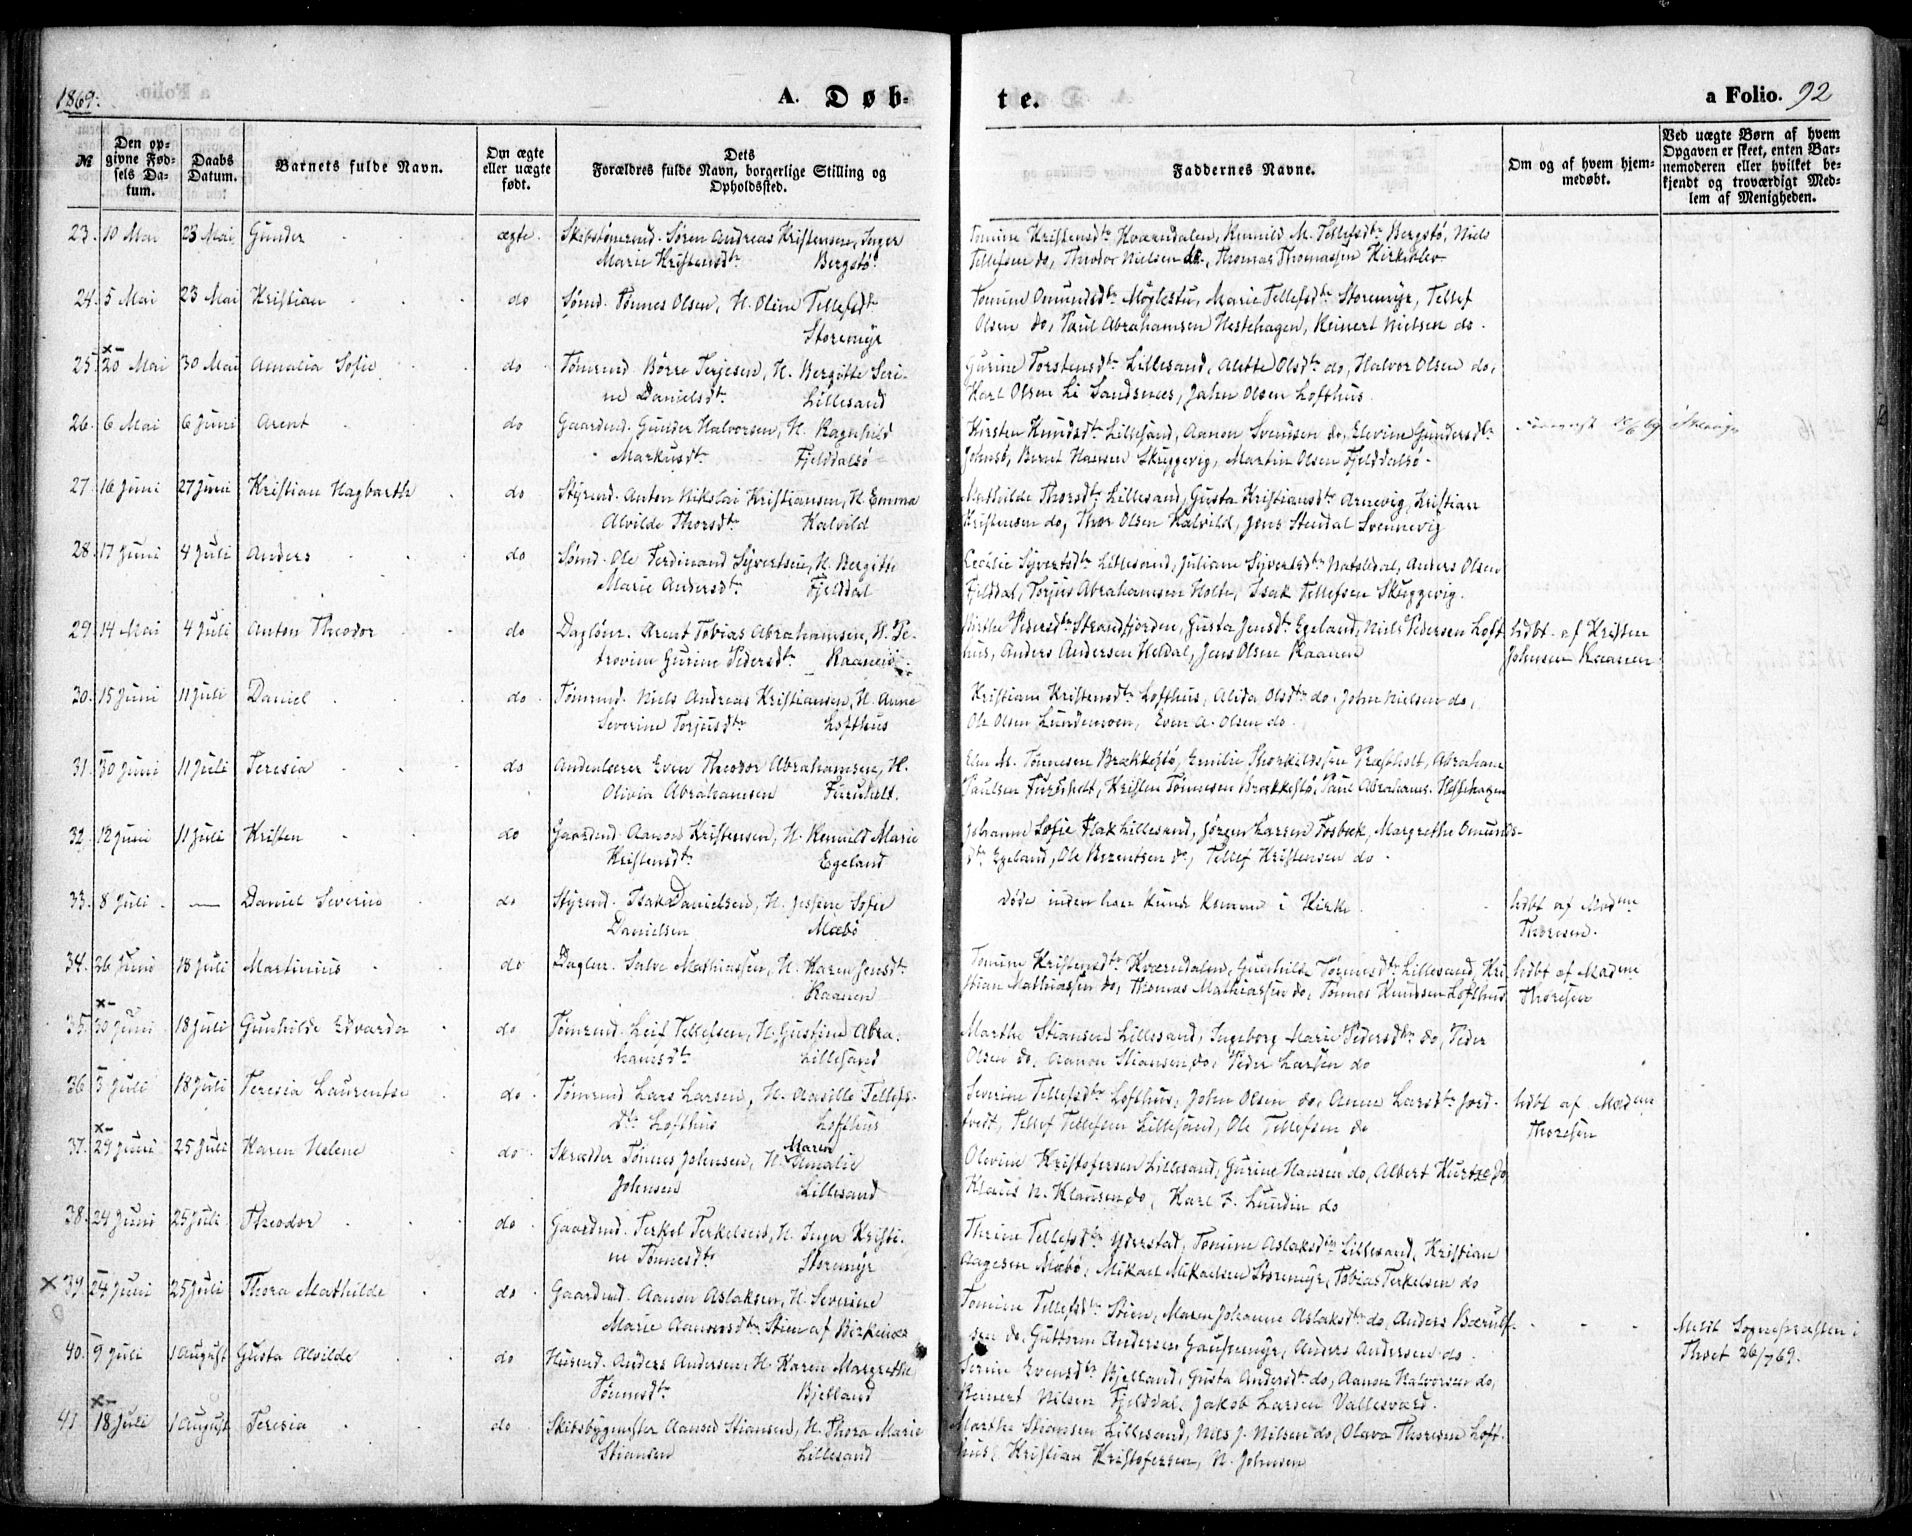 1869.
A. Døb-
te.
a Folio. 92
№
Den op-
givne Fød-
sels Da-
tum.
Daabs
Datum.
Barnets fulde Navn.
Om ægte
eller uægte
født.
Dets
Forældres fulde Navn, borgerlige Stilling og
Opholdssted.
Faddernes Navne.
Om og af hvem hjem-
medøbt.
Ved uægte Børn af hvem
Opgaven er skeet, enten Bar-
nemoderen eller hvilket be-
kjendt og troværdigt Med-
lem af Menigheden.
23. 10 Mai 23 Mai Gunder ægte Skibstømrmd. Søren Andreas Kristensen, Inger
Marie Kristensdtr Bergstø.
Tomine Kristensdtr Kværndalen, M. Tellefsdtr Bergstø, Niels
Tellefsen do, Theodor Nielsen do, Thomas Thomassen
24. 5 Mai 23 Mai Kristian do Sømd. Tønnes Olsen, H. Oline Tellefsdtr
Storemyr
Tomine Omundsdtr Møglestu, Marie Tellefsdtr Storemyr, Tellef
Olsen do, Paul Abrahamsen Hestehagen, Reinert Nielsen do.
25. 20 Mai 30 Mai Amalia Sofie do Tømrmd. Børre Terjesen, H. Bergitte Seri-
ne Danielsdtr Lillesand
Gurine Torstensdtr Lillesand, Alette Olsdtr do, Halvor Olsen do,
Karl Olsen Li Sandsnes, John Olsen Lofthus.
26. 6 Mai 6 Juni Arent do Gaardmd. Gunder Halvorsen, H. Ragnhild
Markusdtr Fjelddalsø
Kirsten Knudsdtr Lillesand, Aanon Svensen do, Elevine Gundersdtr
Johnsø, Bernt Hansen Skuggevig, Martin Olsen Fjelddalsø.
27. 16 Juni 27 Juni Kristian Hagbarth do Styrmd. Anton Nikolai Kristiansen, H. Emma
Alvilde Thorsdtr Kalvild
Mathilde Thorsdtr Lillesand, Gusta Kristiansdtr Arnevig, Kristian
Kristensen do, Thor Olsen Kalvild, Jens Stendal Svennevig
28. 17 Juni 4 Juli Anders do Sømd. Ole Ferdinand Syvertsen, H. Bergitte
Marie Andersdtr Fjelddal
Cecilie Syvertsdtr Lillesand, Juliane Syvertsdtr Natveldal, Anders Olsen
Fjelddal, Torjus Abrahamsen Holte, Isak Tellefsen Skuggevig.
29. 14 Mai 4 Juli Anton Theodor do Dagløn. Arent Tobias Abrahamsen, H. Pe-
trovine Gurine Pedersdtr
Pedersdtr Strandfjorden, Gusta Jensdtr Egeland, Niels Pedersen Loft-
hus, Anders Andersen Heldal, Jens Olsen Kaanen
hdbt. af Kristen
Johnsen Kaanen
30. 15 Juni 11 Juli Daniel do Tømrmd. Niels Andreas Kristiansen, H. Anne
Severine Torjusdtr Lofthus
Kristiane Kristensdtr Lofthus, Alida Olsdtr do, John Nielsen do,
Ole Olsen Lundemoen, Even A. Olsen do.
31. 30 Juni 11 Juli Teresia do Andenlærer Even Theodor Abrahamsen, H.
Olivia Abrahamsen Furuholt.
M. Tønnesen Brækkestø, Emilie Thorkildssen Præstholt, Abraham
Paulsen Furuholt, Kristen Tønnesen Brækkestø, Paul Abrahams. Hestehagen
32. 12 Juni 11 Juli Kristen do Gaardmd. Aanon Kristensen, H. Marie
Kristensdtr Egeland
Johanne Sofie Flak Lillesand, Jørgen Larsen Fosbæk, Margrethe Omunds-
dtr Egeland, Ole Berentsen do, Tellef Kristensen do.
33. 8 Juli — Daniel Severin do Styrmd. Isak Danielsen, H. Jessine Sofie
Danielsen Mæbø
Døde inden han kunde komme i Kirke
hdbt af Madme
Thoresen.
34. 26 Juni 18 Juli Martinius do Dagløn. Salve Mathiassen, H. Karen Jensdtr
Kaanen
Tomine Kristensdtr Kværndalen, Gunhilde Tønnesdtr Lillesand, Kri-
stian Mathiassen do, Thomas Mathiassen do, Tønnes Knudsen Lofthus
hdbt af Madme
Thoresen
35. 30 Juni 18 Juli Gunhilde Edvarda do Tømrmd. Leif Tellefsen, H. Gustine Abra-
hamsdtr Lillesand
Marthe Stiansen Lillesand, Ingeborg Marie Pedersdtr do, Peder
Olsen do, Aanon Stiansen do, Peder Larsen do
36. 3 Juli 18 Juli Teresia Laurentse do Tømrmd Lars Larsen, H. Aasille Tellefs-
dtr Lofthus Lofthus
Severine Tellefsdtr Lofthus, John Olsen do, Anne Larsdtr Jord-
tvedt, Tellef Tellefsen Lillesand, Ole Tellefsen do
hdbt af Madme
Thoresen
37. 29 Juni 25 Juli Karen Helene do Skrædder Tønnes Johnsen, H. Maren Amalie
Johnsen Lillesand
Olevine Kristofersen Lillesand, Gurine Hansen do, Albert Kurtze do
Klaus N. Klausen do, Karl F. Lundin do
38. 24 Juni 25 Juli Theodor do Gaardmd. Terkel Terkelsen, H. Inger Kristi-
ne Tønnesdtr Storemyr
Thrine Tellefsdtr Yderstad, Tomine Aslaksdtr Lillesand, Kristian
Aagesen Mæbø, Mikael Mikaelsen Storemyr, Tobias Terkelsen do
x 39. 24 Juni 25 Juli Thora Mathilde do Gaardmd. Aanon Aslaksen, H. Severine
Marie Aanonsdtr, Stien af Birkenæs
Tomine Tellefsdtr Stien, Maren Johanne Aslaksdtr do, Anders Bærulf-
sen do, Guttorm Andersen Gaupemyr, Anders Andersen do.
Meldt Sognepræsten i
Thvet 26/7 69.
40. 9 Juli 1 August Gusta Alvilde do Husmd. Anders Andersen, H. Karen Margrethe
Tønnesdtr Bjelland
Serine Evensdtr Bjelland, Gusta Andersdtr do, Aanon Halvorsen do,
Reinert Nilsen Fjelddal, Jakob Larsen Vallesværd.
41 18 Juli 1 August Teresia do Skibsbygmester Aanon Stiansen, H. Thora Marie
Stiansen Lillesand
Marthe Stiansen Lillesand, Nils J. Nilsen do, Olava Thoresen Loft-
hus, Kristian Kristofersen, N. Johnsen